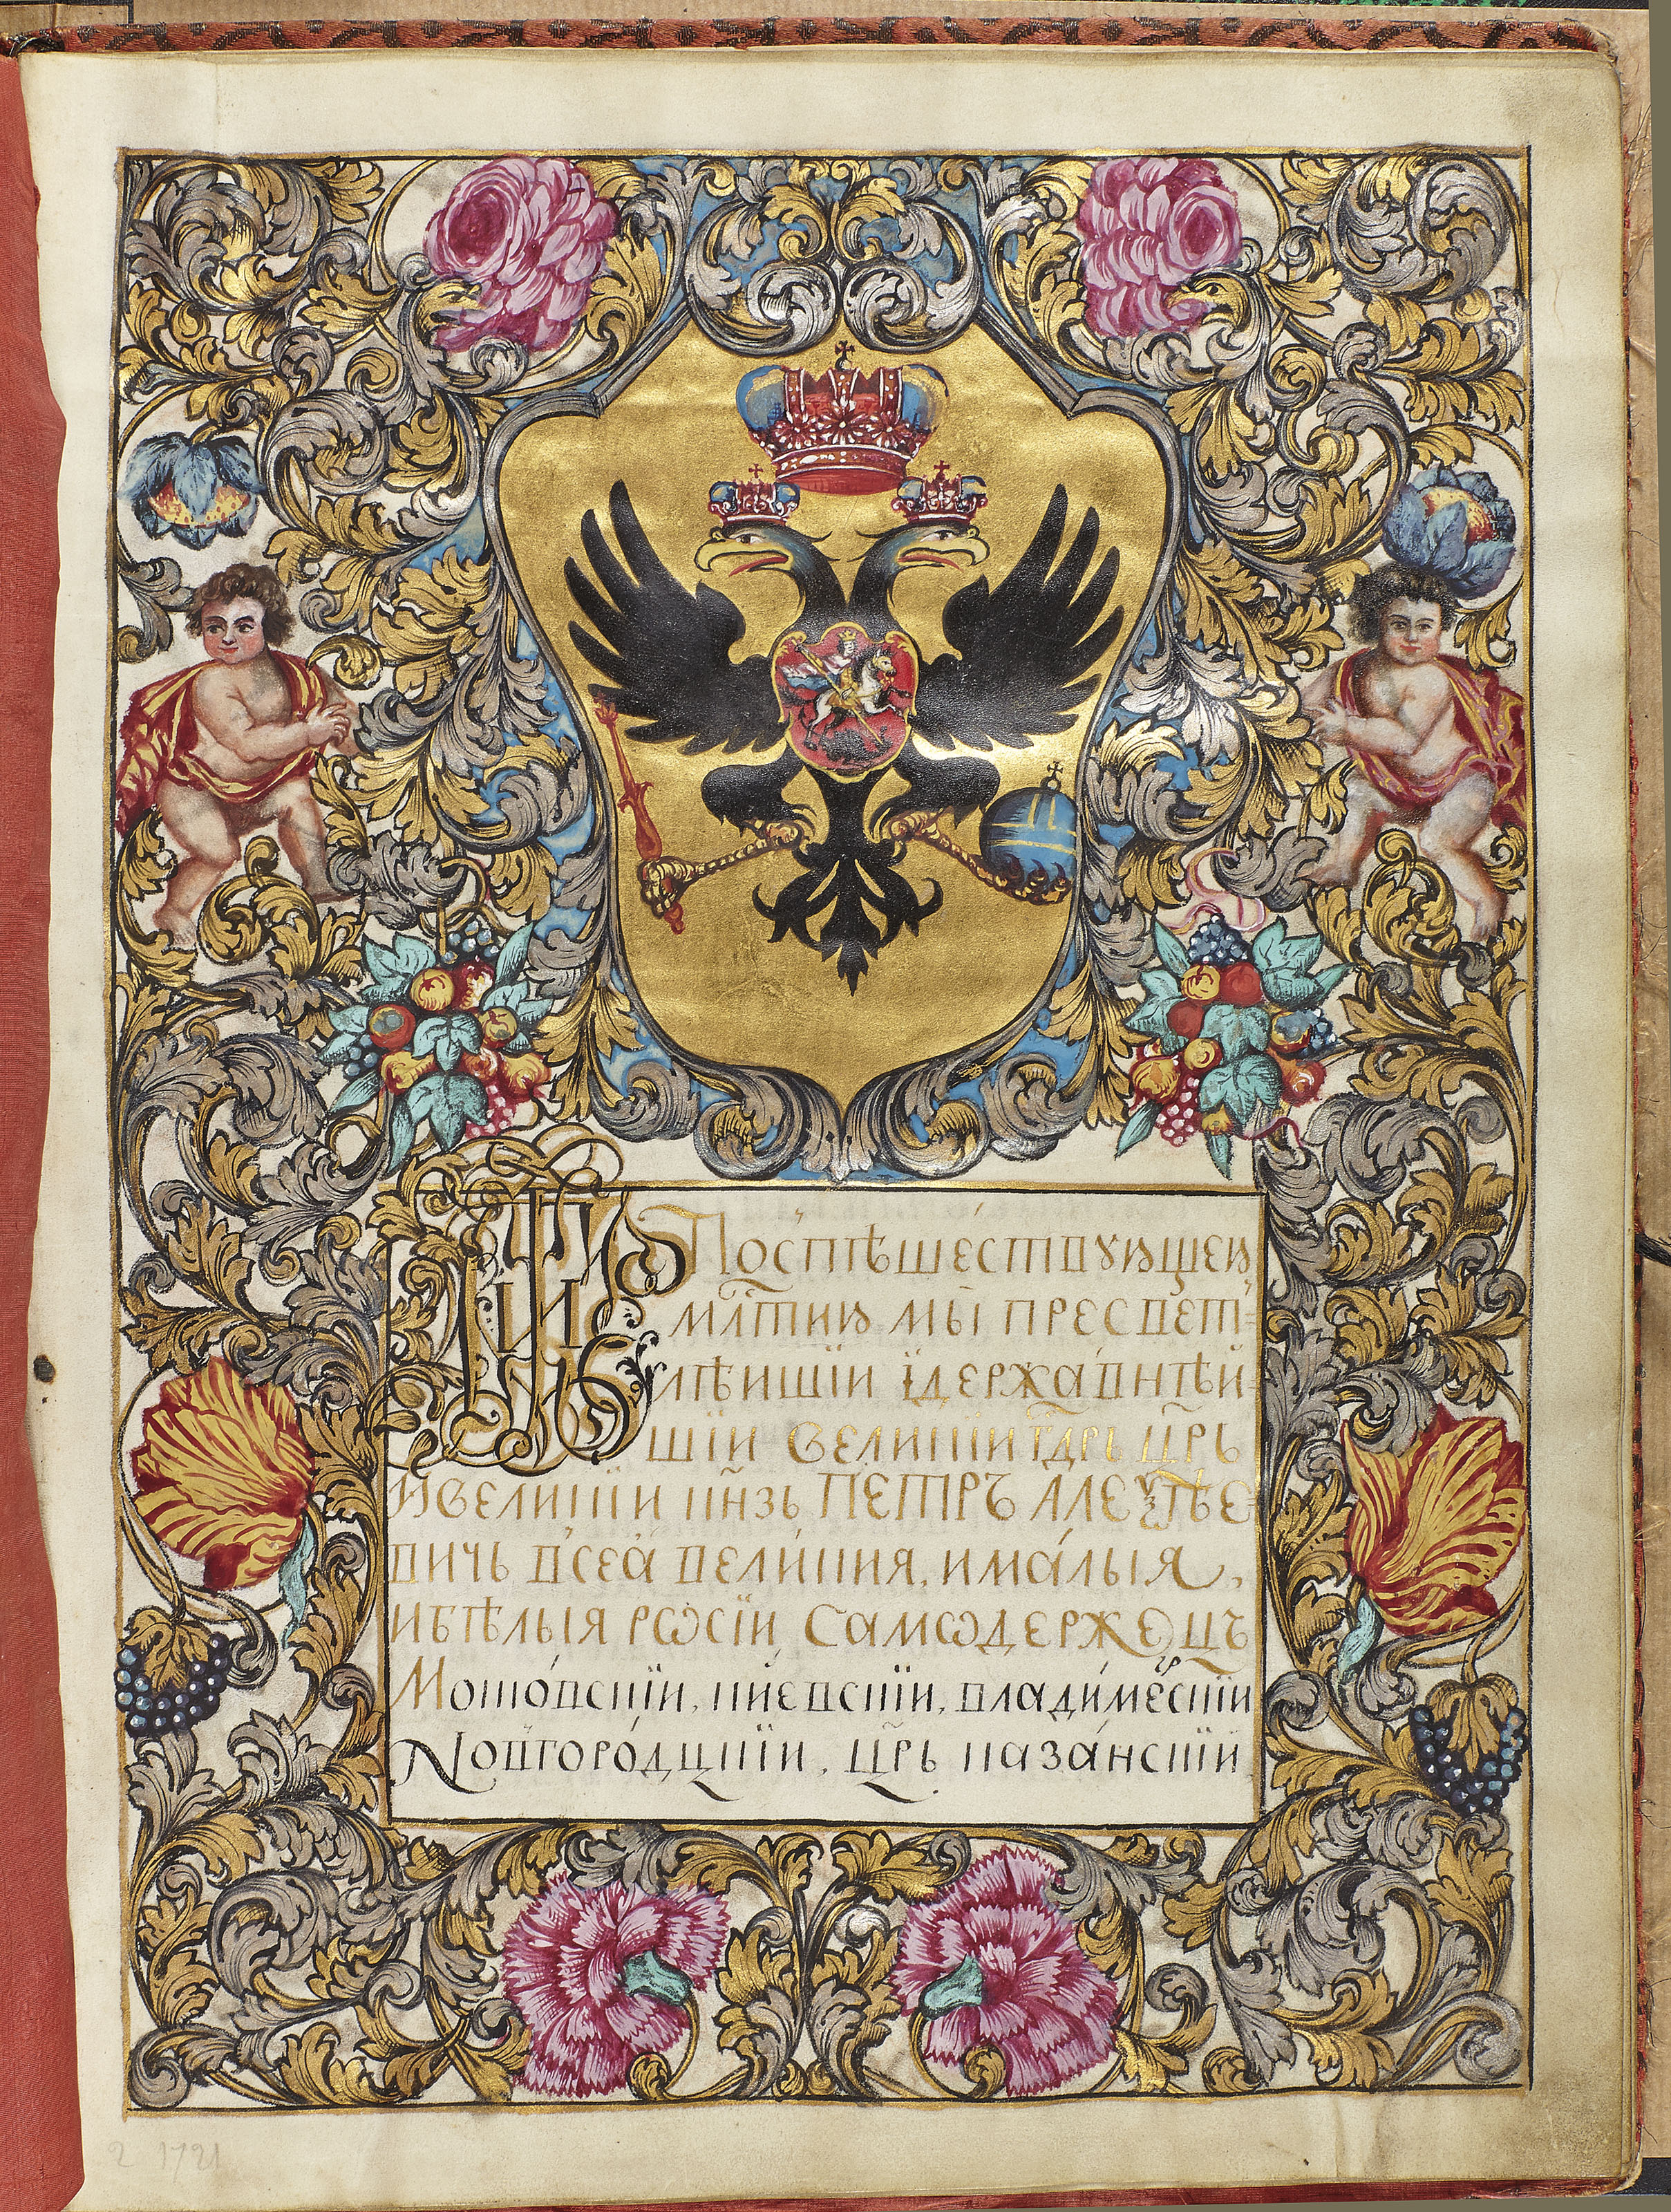 Поспѣшествꙋющеѭ
млⷭ҇тиѭ мы̀ пресвет-
лѣишїи їдержа́внѣй-
шїи великїи гдⷭ҇рь цр҃ь
ивеликїи кн҃зь ПЕТРЪ АЛЕѮѢЕ-
вичь всеа̀ вели́кия, има́лыя,
ибѣлыя рѡсїи, Самѡдержецъ
Моско́вскїи, кі́евскїи, влади́мерскїи
Новгоро́дцкїи, цр҃ь каза́нскїи
2 1721